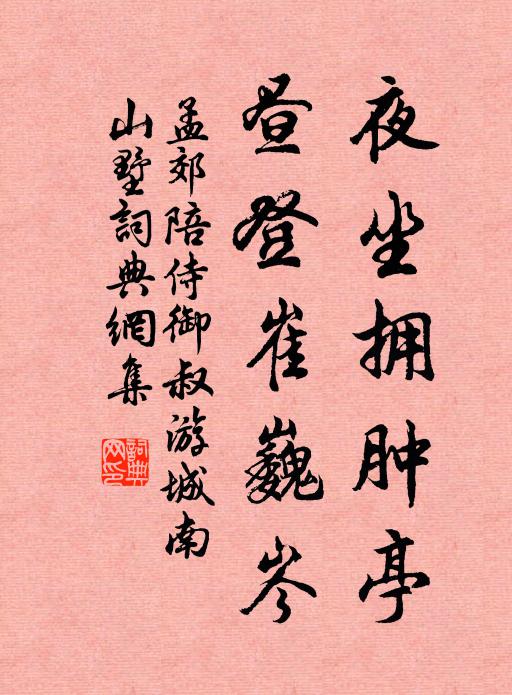 夜坐拥肿亭
昼登崔巍岑
孟郊陪侍御叔游城南
山墅詞典網集
詞典网印